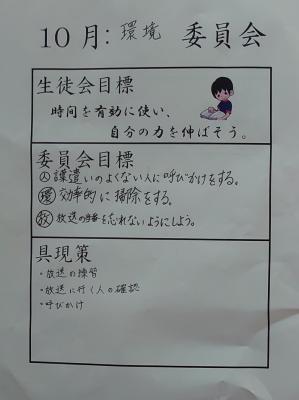 10月:環境 委員会
生徒会目標
時間を有効に使い、
自分の力を伸ばそう。
委員会目標
いのよくない人に呼びかけをする。
環 効率的に掃除をする。
放 放送の当番を忘れないようにしよう。
具現策
・放送の練習
・放送に行く人の確認
・呼びかけ